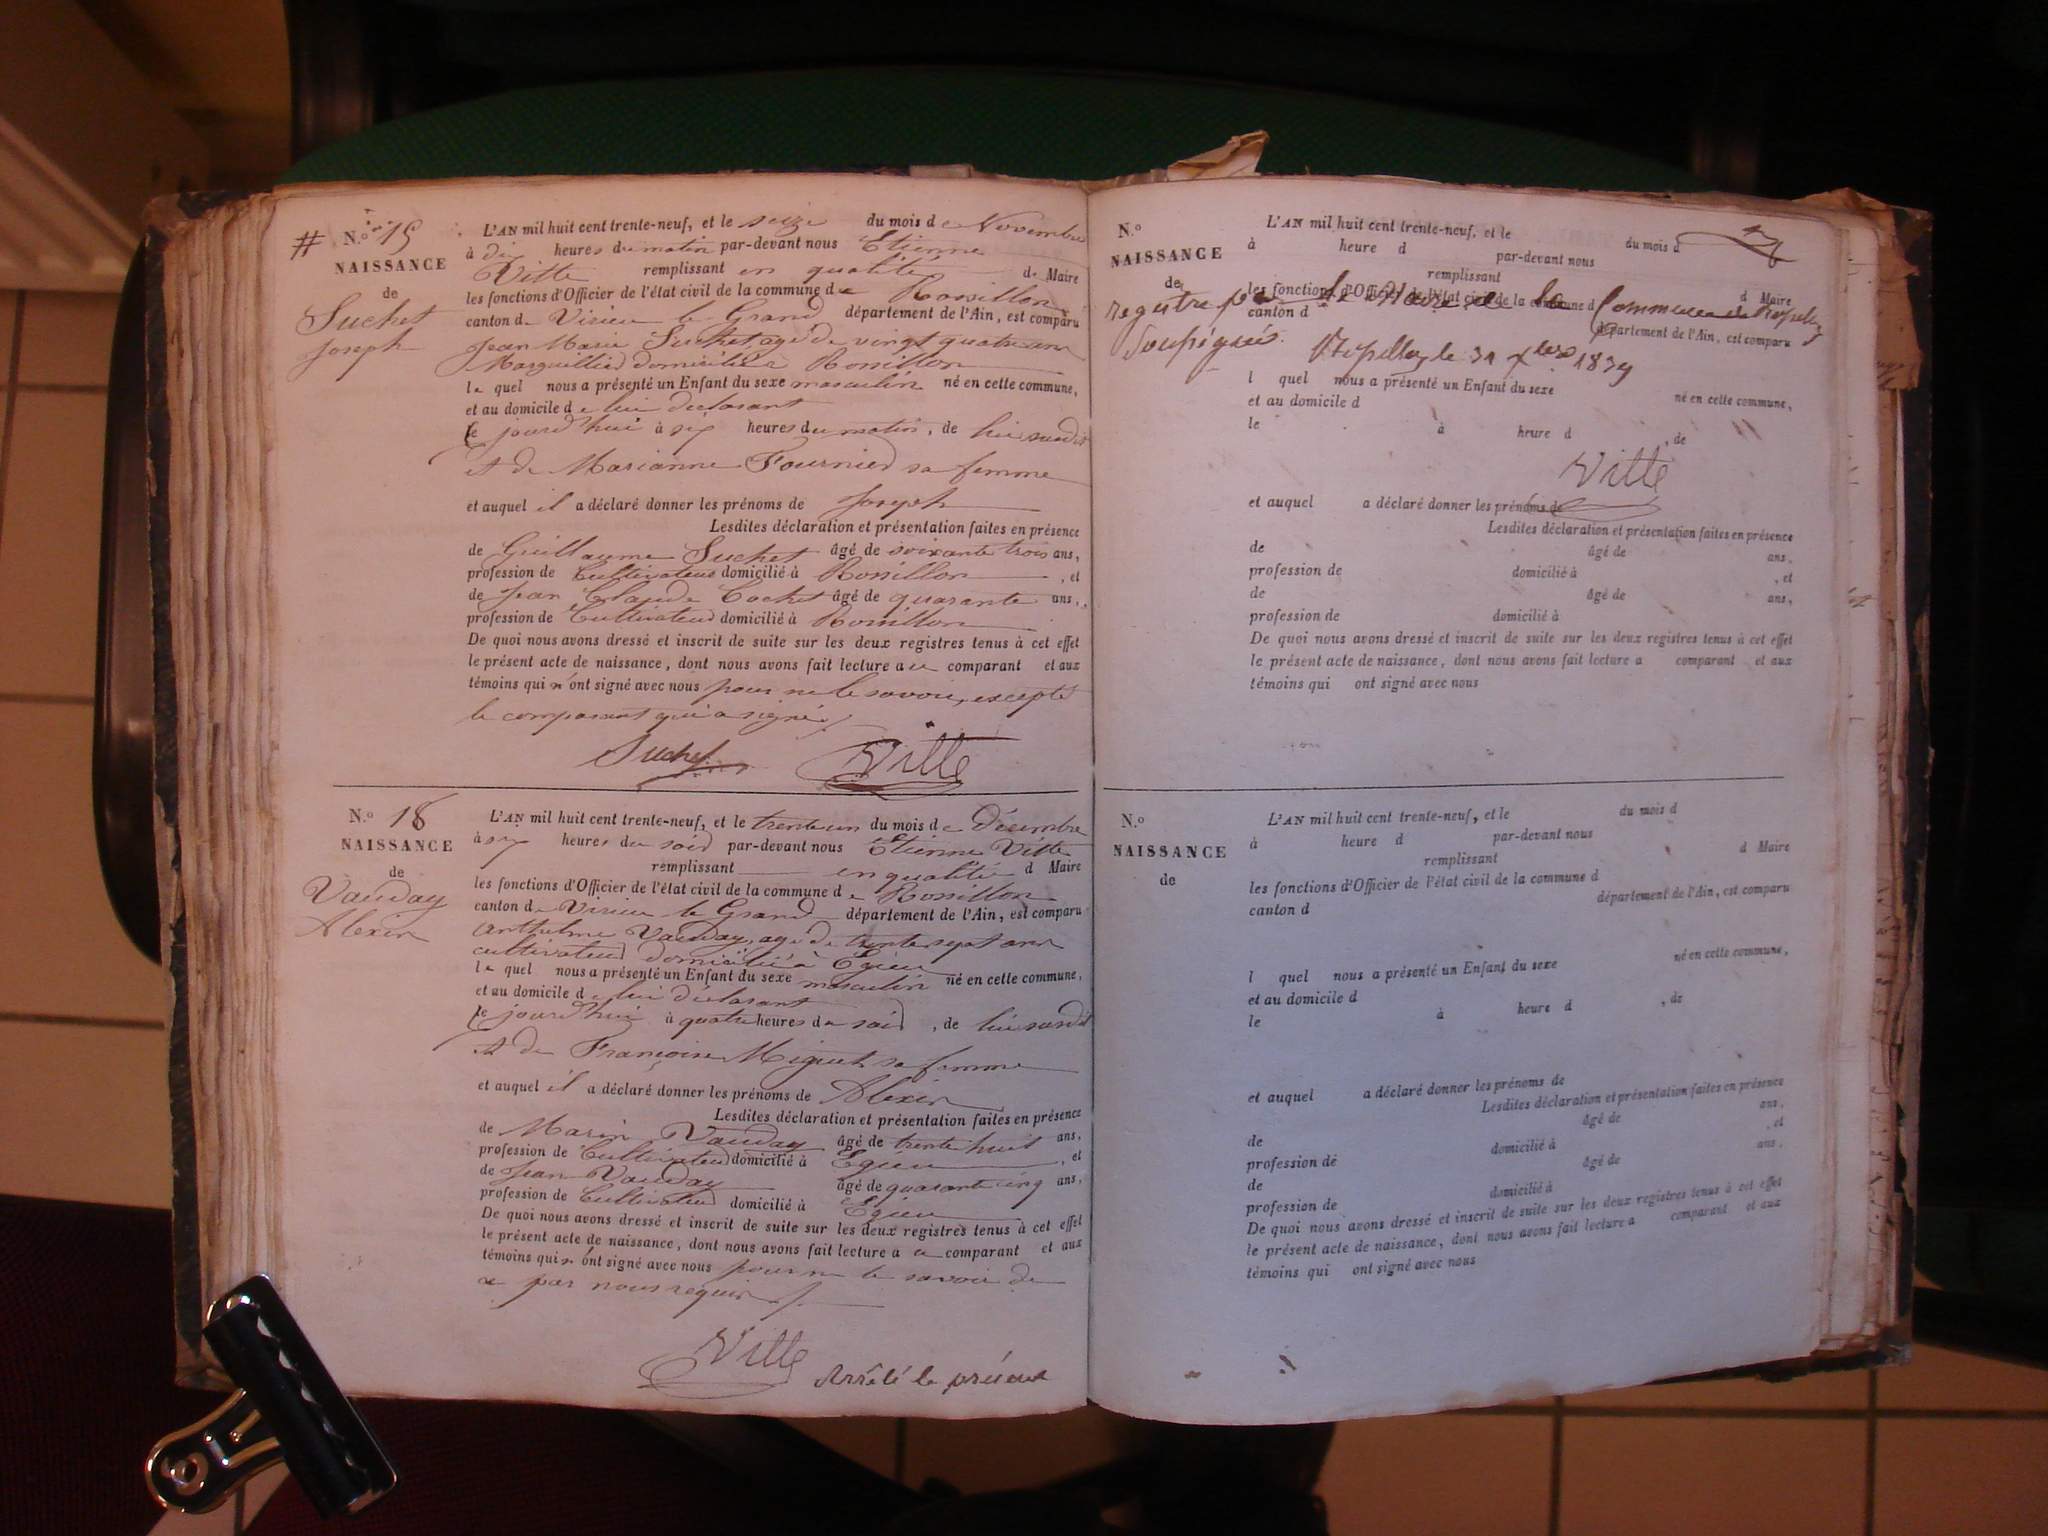 # N.o 15
NAISSANCE
de
Suchet
Joseph
L'AN mil huit cent trente-neuf, et le seize du mois de Novembre
à dix heures du matin par-devant nous Etienne
Vitte remplissant en qualité de Maire
les fonctions d'Officier de l'état civil de la commune de Rossillon
canton de Virieu le Grand département de l'Ain, est comparu
Jean Marie Suchet, agé de vingt quatre ans
Marguillier domicilié à Rossillon
le quel nous a présenté un Enfant du sexe masculin né en cette commune,
et au domicile de lui déclarant
ce jourd'hui à six heures du matin, de lui susdit
et de Marianne Fournier sa femme
et auquel il a déclaré donner les prénoms de Joseph
Lesdites déclaration et présentation faites en présence
de Guillaume Suchet âgé de soixante trois ans,
profession de Cultivateur domicilié à Rossillon, et
de Jean Claude Cochet âgé de quarante ans,
profession de Cultivateur domicilié à Rossillon
De quoi nous avons dressé et inscrit de suite sur les deux registres tenus à cet effet
le présent acte de naissance, dont nous avons fait lecture au comparant et aux
témoins qui n'ont signé avec nous pour ne le savoir, excepté
le comparant qui a signé
Suchet Vitte
N.o 18
NAISSANCE
de
Vauday
Alexis
L'AN mil huit cent trente-neuf, et le trente un du mois de Décembre
à six heures du soir par-devant nous Etienne Vitte
remplissant en qualité d Maire
les fonctions d'Officier de l'état civil de la commune de Rossillon
canton de Virieu le Grand département de l'Ain, est comparu
Anthelme Vauday, agé de trente sept ans
cultivateur domicilié à Egieu
le quel nous a présenté un Enfant du sexe masculin né en cette commune,
et au domicile de lui déclarant
ce jourd'hui à quatre heures du soir, de lui susdit
et de Françoise Miguet sa femme
et auquel il a déclaré donner les prénoms de Alexis
Lesdites déclaration et présentation faites en présence
de Marin Vauday âgé de trente huit ans,
profession de Cultivateur domicilié à Egieu, et
de Jean Vauday âgé de quarante cinq ans,
profession de Cultivateur domicilié à Egieu
De quoi nous avons dressé et inscrit de suite sur les deux registres tenus à cet effet
le présent acte de naissance, dont nous avons fait lecture au comparant et aux
témoins qui n'ont signé avec nous pour ne le savoir de
ce par nous requis
Vitte Arrêté le présent
N.o
NAISSANCE
de
L'AN mil huit cent trente-neuf, et le du mois d
à heure d par-devant nous
remplissant d Maire
les fonctions d'Officier de l'état civil de la commune d
registre par le Maire de la Commune de Rossillon
canton d département de l'Ain, est comparu
Soussigné. Rossillon, le 31 Xbre 1839
l quel nous a présenté un Enfant du sexe né en cette commune,
et au domicile d
le à heure d , de
Vitte
et auquel a déclaré donner les prénoms de
Lesdites déclaration et présentation faites en présence
de âgé de ans,
profession de domicilié à , et
de âgé de ans,
profession de domicilié à
De quoi nous avons dressé et inscrit de suite sur les deux registres tenus à cet effet
le présent acte de naissance, dont nous avons fait lecture a comparant et aux
témoins qui ont signé avec nous
N.o
NAISSANCE
de
L'AN mil huit cent trente-neuf, et le du mois d
à heure d par-devant nous
remplissant d Maire
les fonctions d'Officier de l'état civil de la commune d
canton d département de l'Ain, est comparu
l quel nous a présenté un Enfant du sexe né en cette commune,
et au domicile d
le à heure d , de
et auquel a déclaré donner les prénoms de
Lesdites déclaration et présentation faites en présence
de âgé de ans,
profession de domicilié à , et
de âgé de ans,
profession de domicilié à
De quoi nous avons dressé et inscrit de suite sur les deux registres tenus à cet effet
le présent acte de naissance, dont nous avons fait lecture a comparant et aux
témoins qui ont signé avec nous